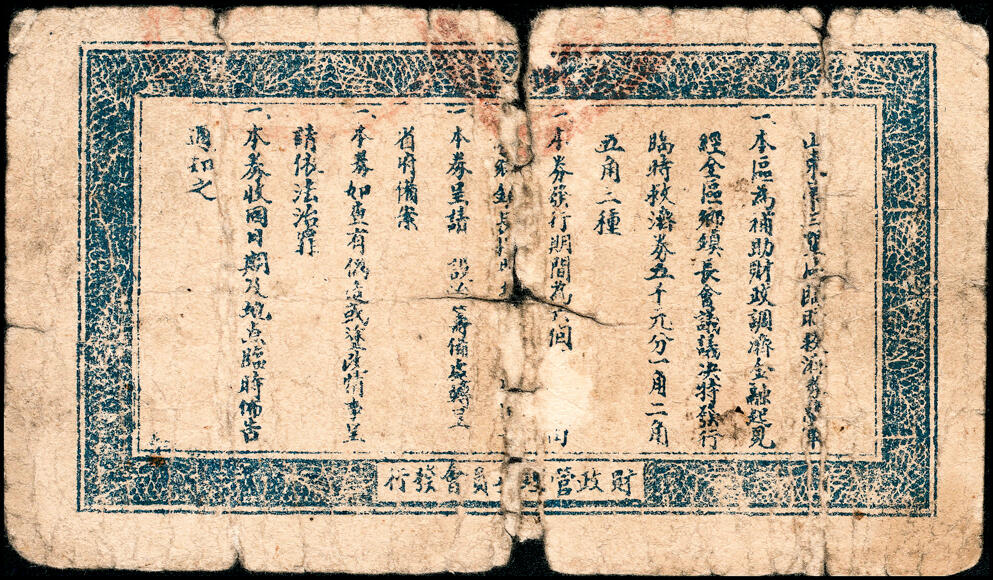 山東三區臨時救濟券章
一、本區為補助財政調濟金融起見
經全區鄉鎮長會議議決特發行
臨時救濟券五千元分一角二角
五角三種
一本券發行期間為個
鎮長
一本券呈請 設治籌備處轉呈
省府備案
一、本券如查有偽造或塗改情事呈
請依法治罪
一、本券收回日期及地点臨時佈告
週知之
財政管員會發行